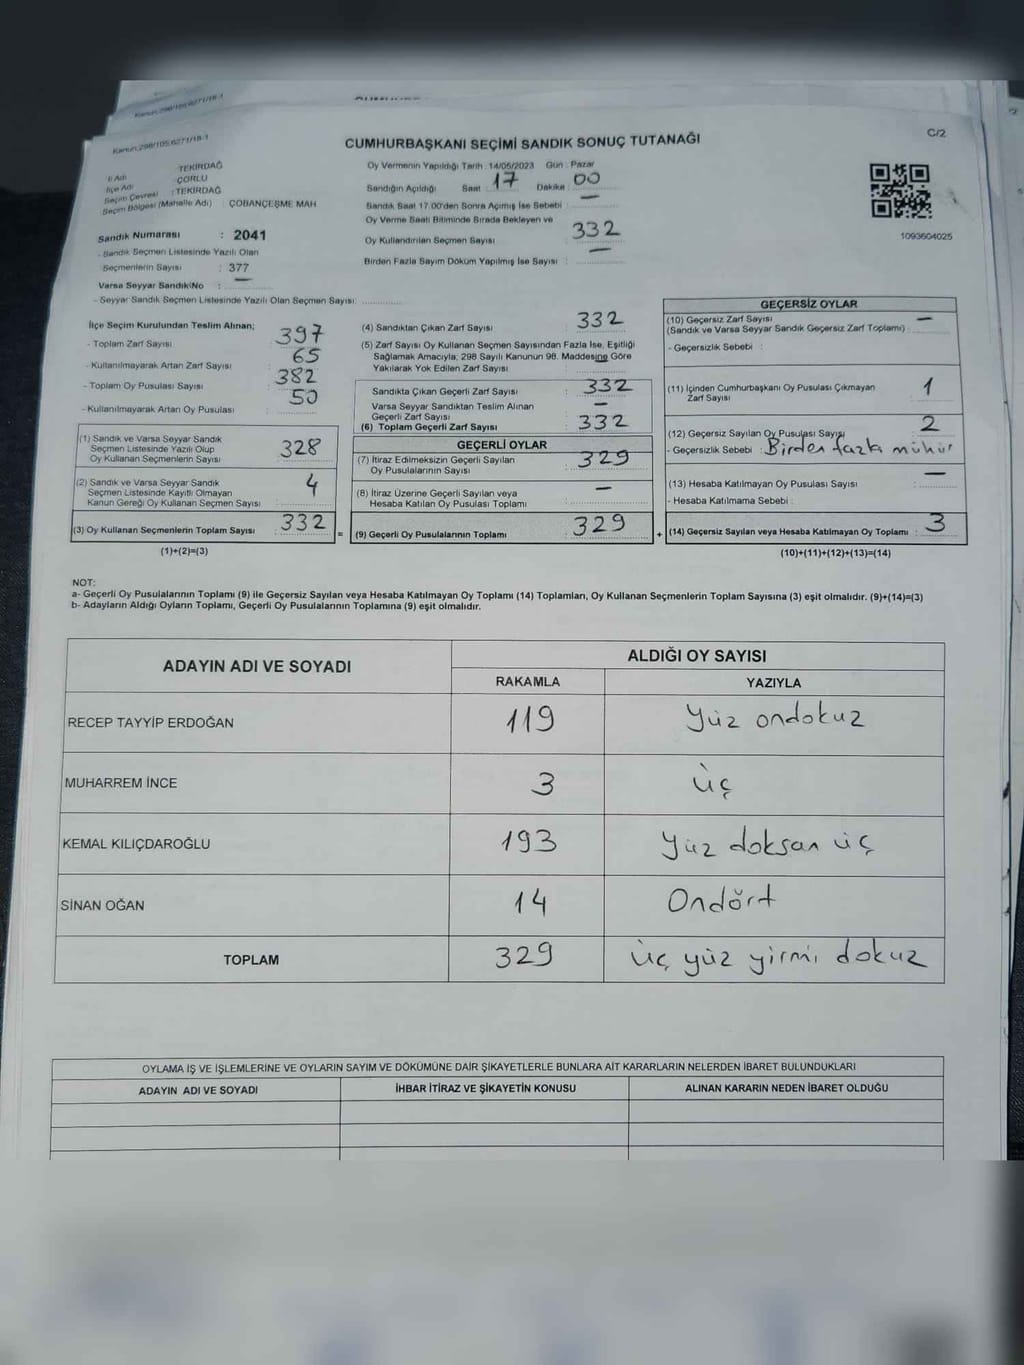 Kanun:298/105,6271/18-1
Kanun:298/105,6271/18-1
C/2
CUMHURBAŞKANI SEÇİMİ SANDIK SONUÇ TUTANAĞI
İl Adı : TEKİRDAĞ
İlçe Adı : ÇORLU
Seçim Çevresi : TEKİRDAĞ
Seçim Bölgesi (Mahalle Adı) : ÇOBANÇEŞME MAH
Sandık Numarası : 2041
- Sandık Seçmen Listesinde Yazılı Olan
Seçmenlerin Sayısı : 377
Varsa Seyyar Sandık No : —
- Seyyar Sandık Seçmen Listesinde Yazılı Olan Seçmen Sayısı:
Oy Vermenin Yapıldığı Tarih :14/05/2023 Gün : Pazar
Sandığın Açıldığı Saat 17 Dakika 00
Sandık Saat 17.00'den Sonra Açımış İse Sebebi : —
Oy Verme Saati Bitiminde Sırada Bekleyen ve
Oy Kullandırılan Seçmen Sayısı : 332
Birden Fazla Sayım Döküm Yapılmış İse Sayısı : —
1093604025
İlçe Seçim Kurulundan Teslim Alınan;
- Toplam Zarf Sayısı : 397
- Kullanılmayarak Artan Zarf Sayısı : 65
- Toplam Oy Pusulası Sayısı : 382
- Kullanılmayarak Artan Oy Pusulası : 50
(1) Sandık ve Varsa Seyyar Sandık
Seçmen Listesinde Yazılı Olup
Oy Kullanan Seçmenlerin Sayısı : 328
(2) Sandık ve Varsa Seyyar Sandık
Seçmen Listesinde Kayıtlı Olmayan
Kanun Gereği Oy Kullanan Seçmen Sayısı : 4
(3) Oy Kullanan Seçmenlerin Toplam Sayısı : 332
(1)+(2)=(3)
(4) Sandıktan Çıkan Zarf Sayısı : 332
(5) Zarf Sayısı Oy Kullanan Seçmen Sayısından Fazla İse, Eşitliği
Sağlamak Amacıyla; 298 Sayılı Kanunun 98. Maddesine Göre
Yakılarak Yok Edilen Zarf Sayısı :
Sandıkta Çıkan Geçerli Zarf Sayısı : 332
Varsa Seyyar Sandıktan Teslim Alınan
Geçerli Zarf Sayısı : —
(6) Toplam Geçerli Zarf Sayısı : 332
GEÇERLİ OYLAR
(7) İtiraz Edilmeksizin Geçerli Sayılan
Oy Pusulalarının Sayısı : 329
(8) İtiraz Üzerine Geçerli Sayılan veya
Hesaba Katılan Oy Pusulası Toplamı : —
= (9) Geçerli Oy Pusulalarının Toplamı : 329 +
GEÇERSİZ OYLAR
(10) Geçersiz Zarf Sayısı
(Sandık ve Varsa Seyyar Sandık Geçersiz Zarf Toplamı) : —
- Geçersizlik Sebebi :
(11) İçinden Cumhurbaşkanı Oy Pusulası Çıkmayan
Zarf Sayısı : 1
(12) Geçersiz Sayılan Oy Pusulası Sayısı : 2
- Geçersizlik Sebebi : Birden fazla mühür
(13) Hesaba Katılmayan Oy Pusulası Sayısı : —
- Hesaba Katılmama Sebebi :
(14) Geçersiz Sayılan veya Hesaba Katılmayan Oy Toplamı : 3
(10)+(11)+(12)+(13)=(14)
NOT:
a- Geçerli Oy Pusulalarının Toplamı (9) ile Geçersiz Sayılan veya Hesaba Katılmayan Oy Toplamı (14) Toplamları, Oy Kullanan Seçmenlerin Toplam Sayısına (3) eşit olmalıdır. (9)+(14)=(3)
b- Adayların Aldığı Oyların Toplamı, Geçerli Oy Pusulalarının Toplamına (9) eşit olmalıdır.
ADAYIN ADI VE SOYADI ALDIĞI OY SAYISI
RAKAMLA YAZIYLA
RECEP TAYYİP ERDOĞAN 119 Yüz ondokuz
MUHARREM İNCE 3 üç
KEMAL KILIÇDAROĞLU 193 Yüz doksan üç
SİNAN OĞAN 14 Ondört
TOPLAM 329 üç yüz yirmi dokuz
OYLAMA İŞ VE İŞLEMLERİNE VE OYLARIN SAYIM VE DÖKÜMÜNE DAİR ŞİKAYETLERLE BUNLARA AİT KARARLARIN NELERDEN İBARET BULUNDUKLARI
ADAYIN ADI VE SOYADI İHBAR İTİRAZ VE ŞİKAYETİN KONUSU ALINAN KARARIN NEDEN İBARET OLDUĞU